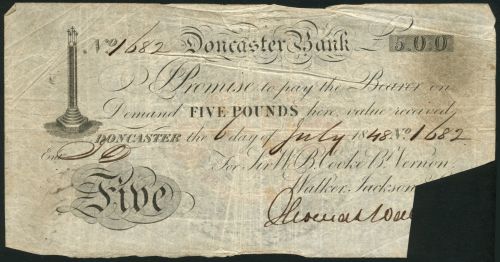 No 1682 Doncaster Bank £5.0.0
I Promise to pay the Bearer on
Demand FIVE POUNDS here, value received
DONCASTER the 6 day of July 1848 No 1682
Ent
For Sir W. B. Cooke Bt. Vernon
Walker, Jackson
Five